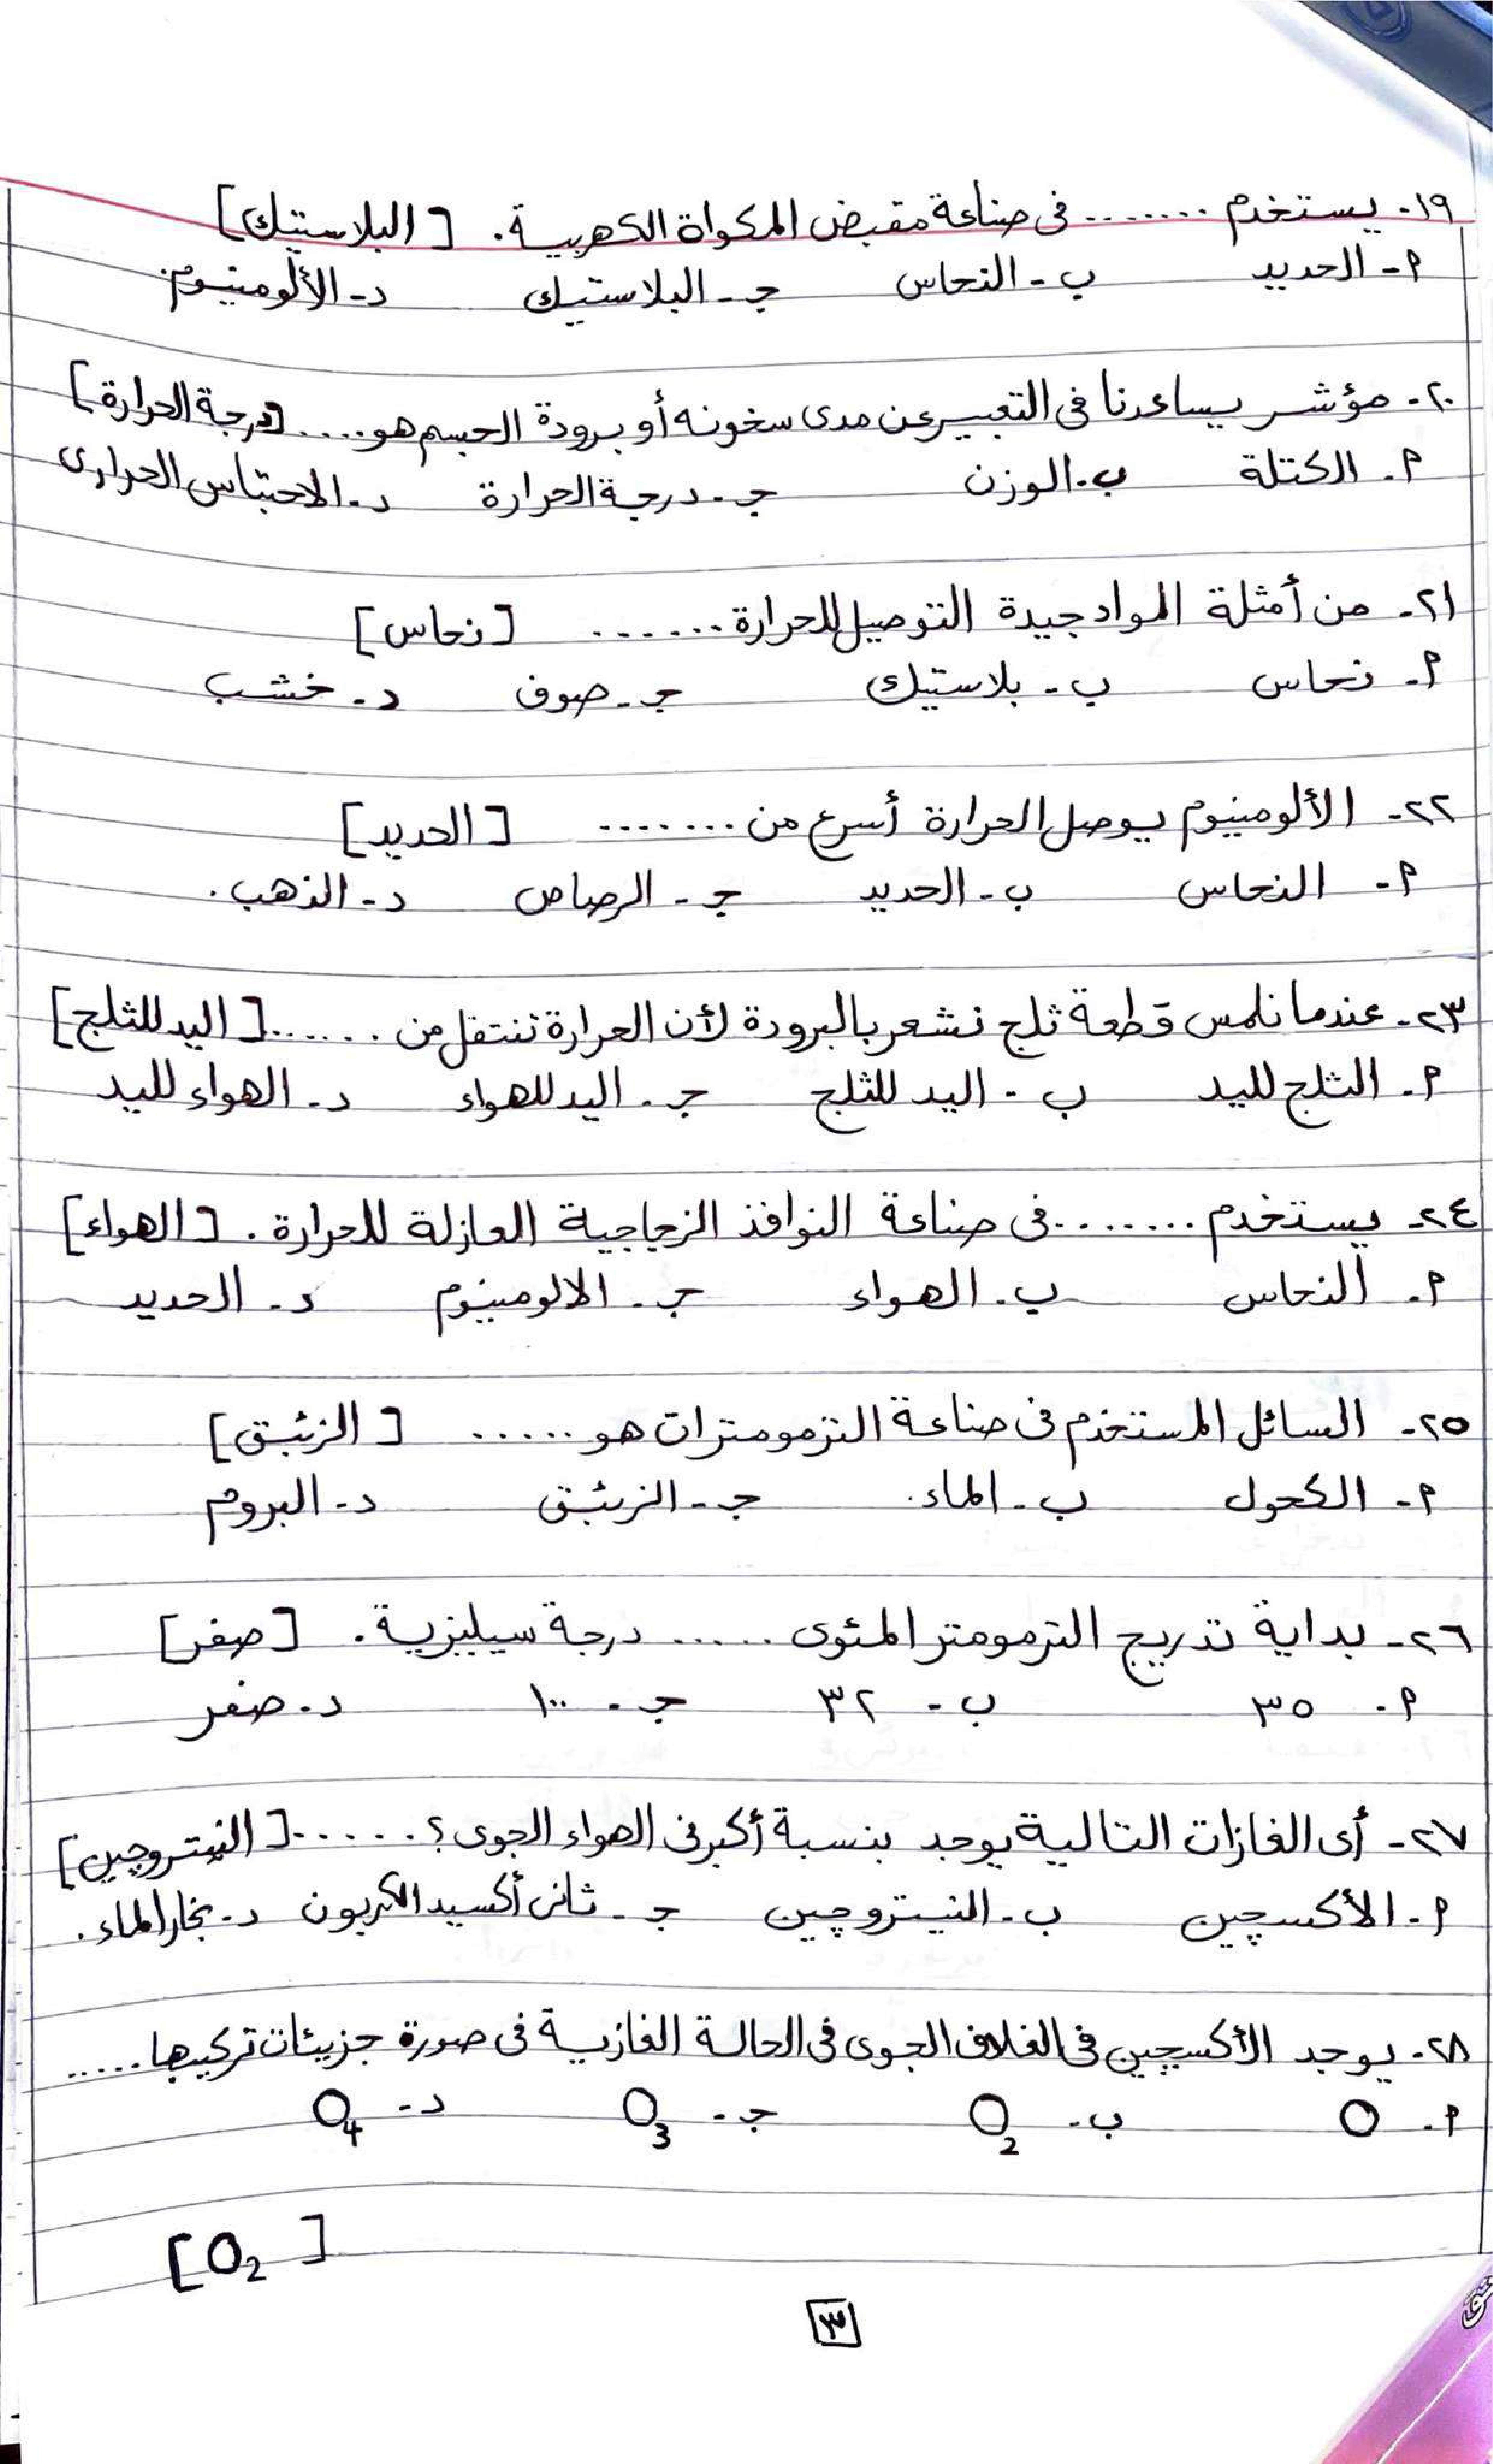 ١٩- يستخدم ........ فى صناعة مقبض المكواة الكهربية. [البلاستيك]
٢- الحديد ب- النحاس جـ- البلاستيك د- الألومنيوم
٢٠- مؤشر يساعدنا فى التعبير عن مدى سخونه أو برودة الجسم هو ..... [درجة الحرارة]
٢- الكتلة ب- الوزن جـ- درجة الحرارة د- الاحتباس الحرارى
٢١- من أمثلة المواد جيدة التوصيل للحرارة ....... [نحاس]
٢- نحاس ب- بلاستيك جـ- صوف د- خشب
٢٢- الألومنيوم يوصل الحرارة أسرع من ........ [الحديد]
٢- النحاس ب- الحديد جـ- الرصاص د- الذهب.
٢٣- عندما نلمس قطعة ثلج نشعر بالبرودة لأن الحرارة تنتقل من ....... [اليد للثلج]
٢- الثلج لليد ب- اليد للثلج جـ- اليد للهواء د- الهواء لليد
٢٤- يستخدم ........ فى صناعة النوافذ الزجاجية العازلة للحرارة. [الهواء]
٢- النحاس ب- الهواء جـ- الالومينوم د- الحديد
٢٥- السائل المستخدم فى صناعة الترمومترات هو ...... [الزئبق]
٢- الكحول ب- الماء. جـ- الزئبق د- البروم
٢٦- بداية تدريج الترمومتر المئوى ...... درجة سيليزية. [صفر]
٢- ٣٥ ب- ٣٢ جـ- ١٠٠ د- صفر
٢٧- أى الغازات التالية يوجد بنسبة أكبر فى الهواء الجوى؟ ...... [النيتروجين]
٢- الأكسچين ب- النيتروچين جـ- ثانى أكسيد الكربون د- بخار الماء.
٢٨- يوجد الأكسچين فى الغلاف الجوى فى الحالة الغازية فى صورة جزيئات تركيبها .....
٢- O ب- O₂ جـ- O₃ د- O₄
[O₂]
٣